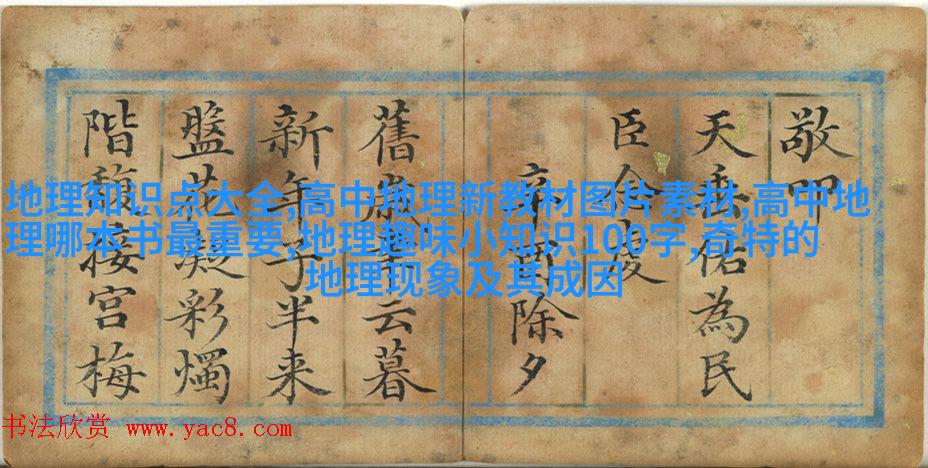 地理知识点大全,高中地理新教材图片素材,高中地
理哪本书最重要,地理趣味小知识100字,奇特的
地理现象及其成因
敬叩
天垂佑為民
臣
除夕
舊歲聿云暮
新年子半来
盤花凝彩燭
階馥接宮梅
书法欣赏 www.yac8.com